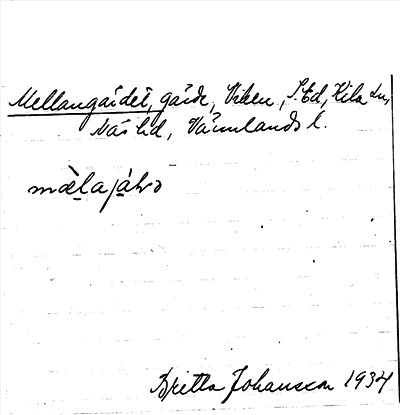 Mellangärdet, gärde, Viken, S. Ed, Kila sn,
Näs hd, Värmlands l.
mæ̀l̠aja̠ḷɔ
Britta Johansson 1934